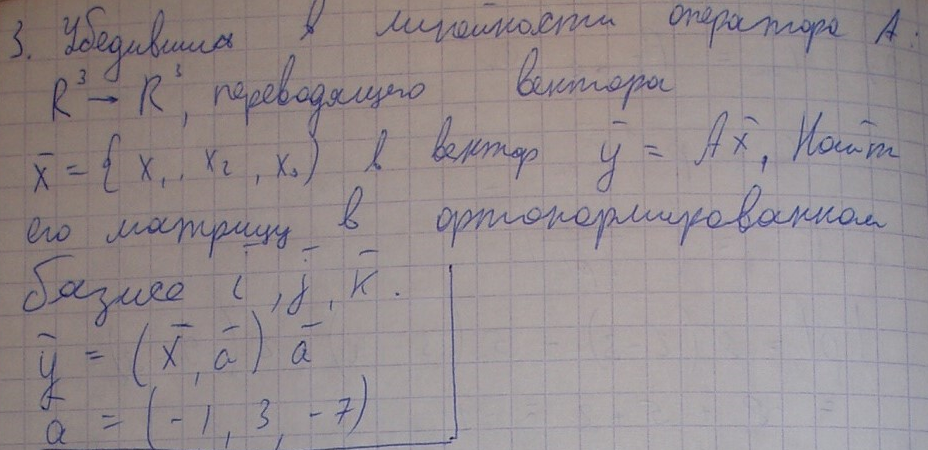 3. Убедившись в линейности оператора A:
R³ → R³, переводящего вектора
x̄ = { x₁, x₂, x₃ ) в вектор ȳ = Ax̄, Найти
его матрицу в ортонормированном
базисе ī, j̄, k̄.
ȳ = (x̄, ā) ā
a = (-1, 3, -7)